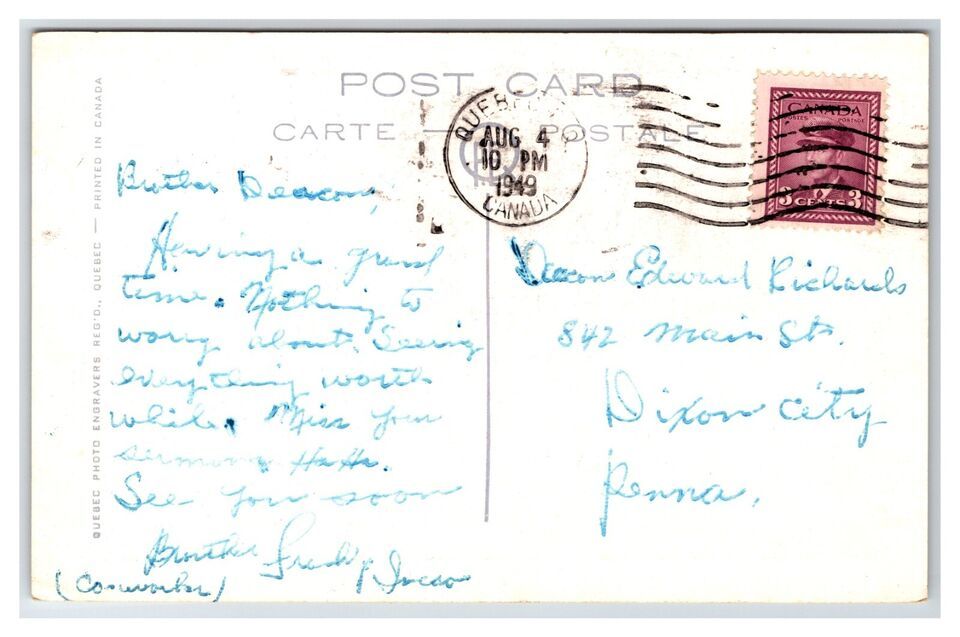 POST CARD
CARTE POSTALE
QUEBEC
AUG 4
10 PM
1949
CANADA
CANADA
POSTES POSTAGE
3 CENTS 3
QUEBEC PHOTO ENGRAVERS REG'D., QUEBEC — PRINTED IN CANADA
Brother Deacon,
Having a grand
time. Nothing to
worry about. Seeing
everything worth
while. Miss your
sermons Ha Ha.
See you soon
Brother Fred
(Co-worker)
Deacon Edward Richards
842 Main St.
Dixon City
Penna.